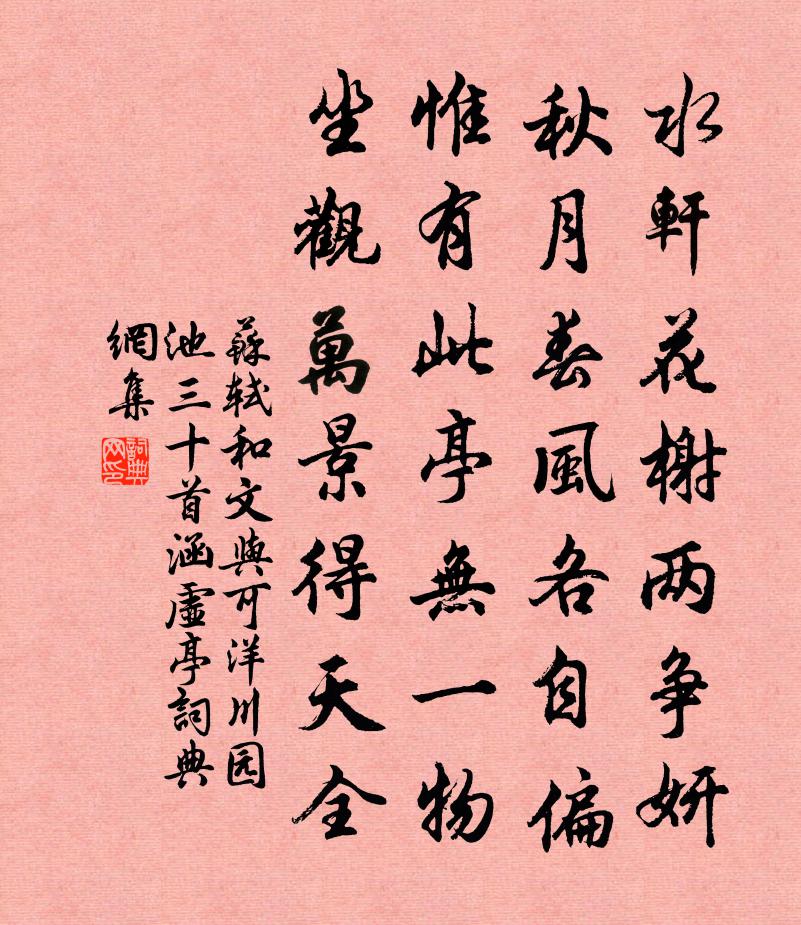 水軒花榭两争妍
秋月春風各自偏
惟有此亭無一物
坐觀萬景得天全
蘇轼和文與可洋川园
池三十首涵虛亭詞典
網集
詞典网印